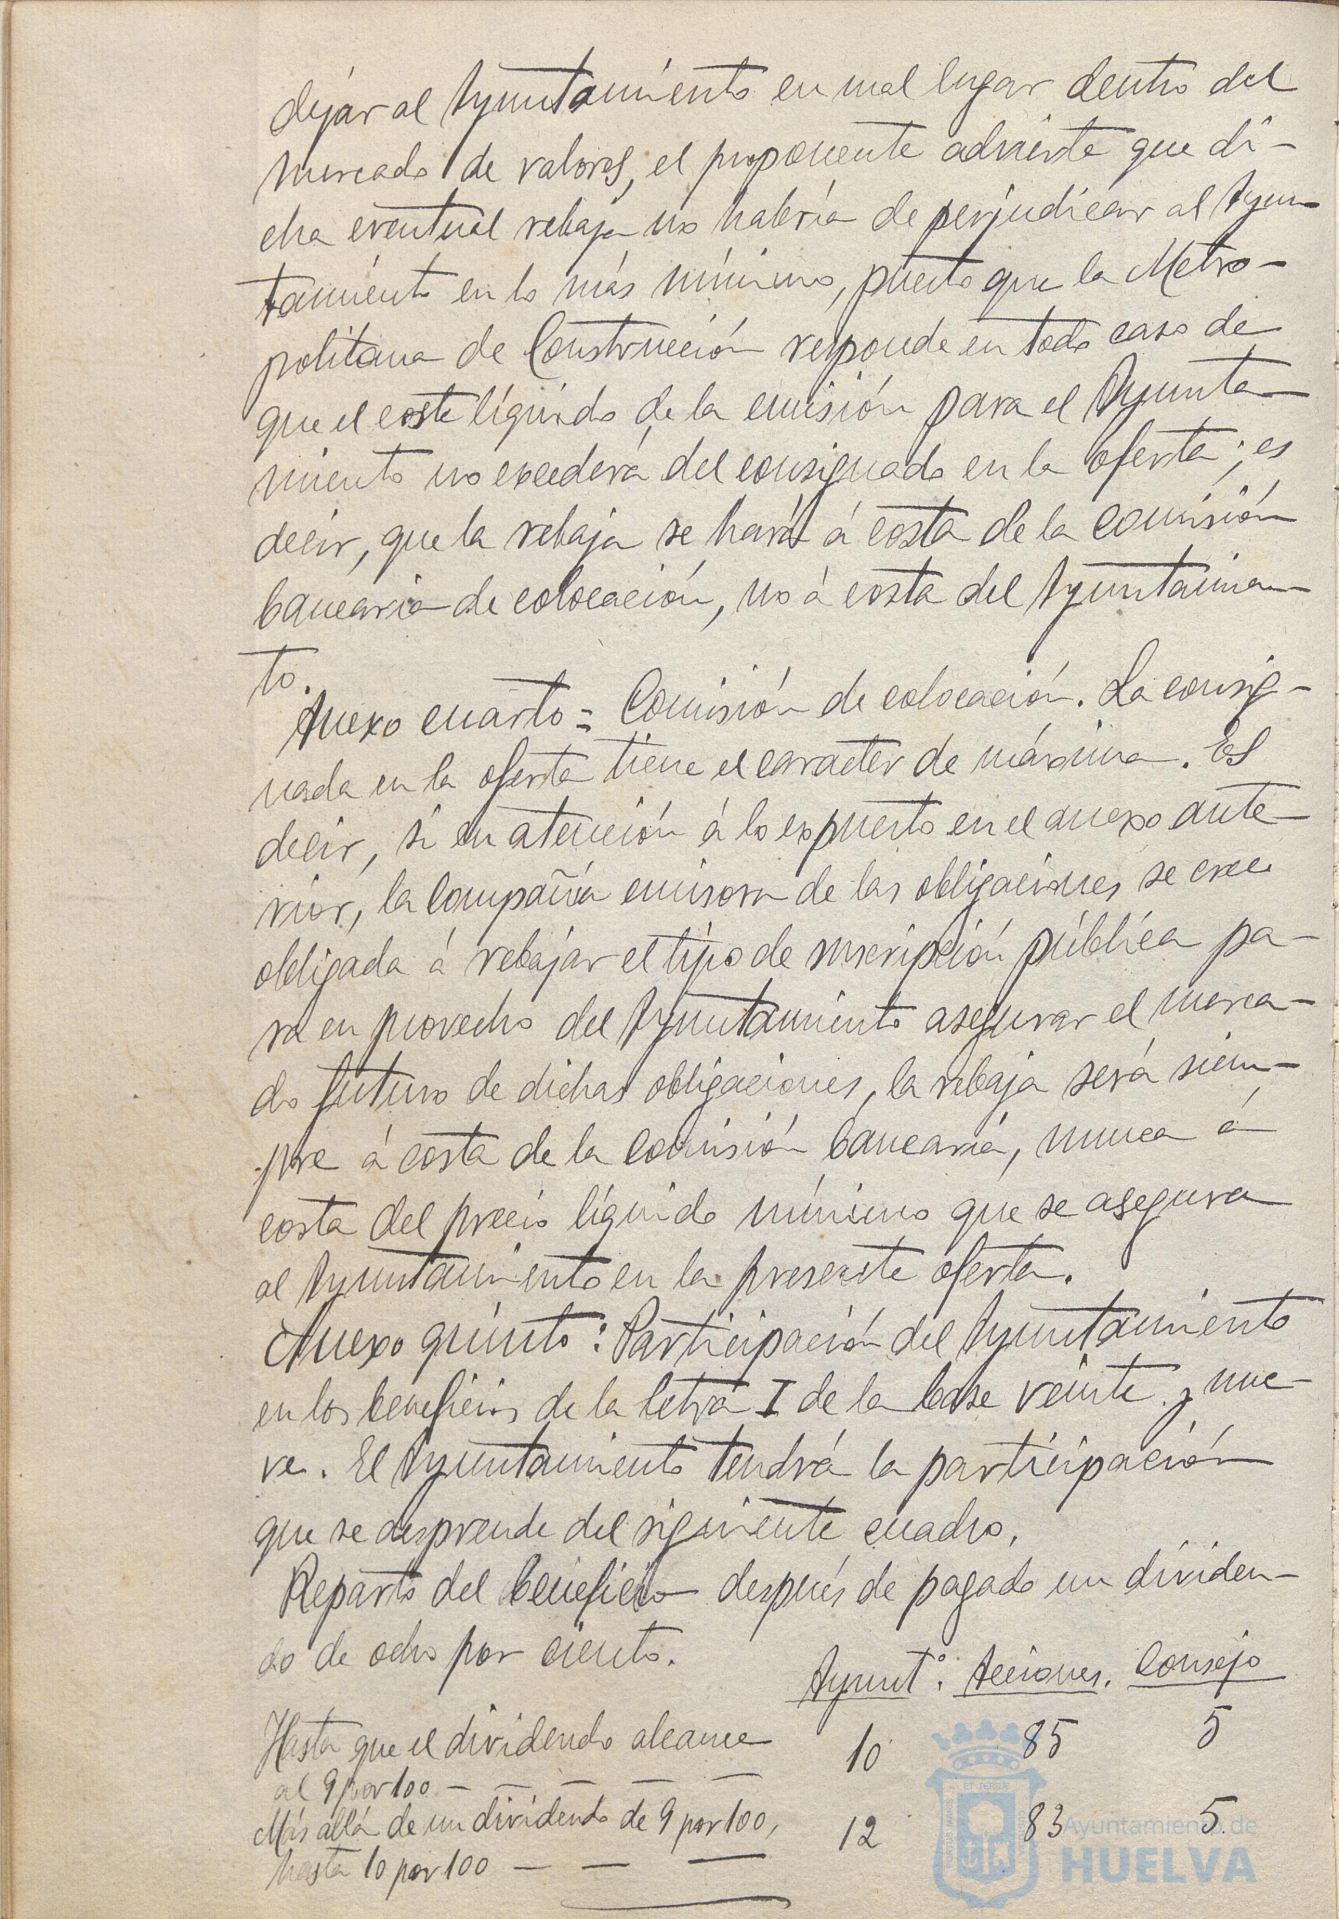 dejár al Ayuntamiento en mal lugar dentro del
mercado de valores, el proponente advierte que di-
cha eventual rebaja no habría de perjudicar al Ayun-
tamiento en lo más mínimo, puesto que la Metro-
politana de Construcción responde en todo caso de
que el coste líquido de la emisión para el Ayunta-
miento no excederá del consignado en la oferta; es
decir, que la rebaja se hará á costa de la comisión
bancaria de colocación, no á costa del Ayuntamien-
to.
Anexo cuarto = Comisión de colocación. La consig-
nada en la oferta tiene el caracter de máxima. Es
decir, si en atención á lo expuesto en el anexo ante-
rior, la Compañía emisora de las obligaciones se cree
obligada á rebajar el tipo de suscripción pública pa-
ra en provecho del Ayuntamiento asegurar el merca-
do futuro de dichas obligaciones, la rebaja será siem-
pre á costa de la comisión bancaria, nunca á
costa del precio líquido mínimo que se asegura
al Ayuntamiento en la presente oferta.
Anexo quinto: Participación del Ayuntamiento
en los beneficios de la letra I de la base veinte y nue-
ve. El Ayuntamiento tendrá la participación
que se desprende del siguiente cuadro.
Reparto del beneficio después de pagado un dividen-
do de ocho por ciento.
Ayuntº. Acciones. Consejo
Hasta que el dividendo alcance
al 9 por 100 — — — — — 10 85 5
Más allá de un dividendo de 9 por 100,
hasta 10 por 100 — — — 12 83 5.
Ayuntamiento de
HUELVA